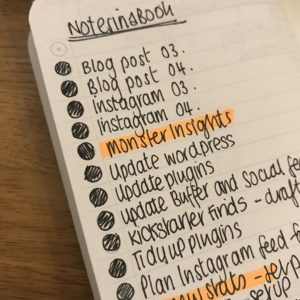 NoteringBook
Blog post 03.
Blog post 04.
instagram 03.
instagram 04.
Monster Insights
Update wordpress
Update plugins
update Buffer and Social
Kickstarter finds - draft
Tidy up plugins
Plan Instagram feed